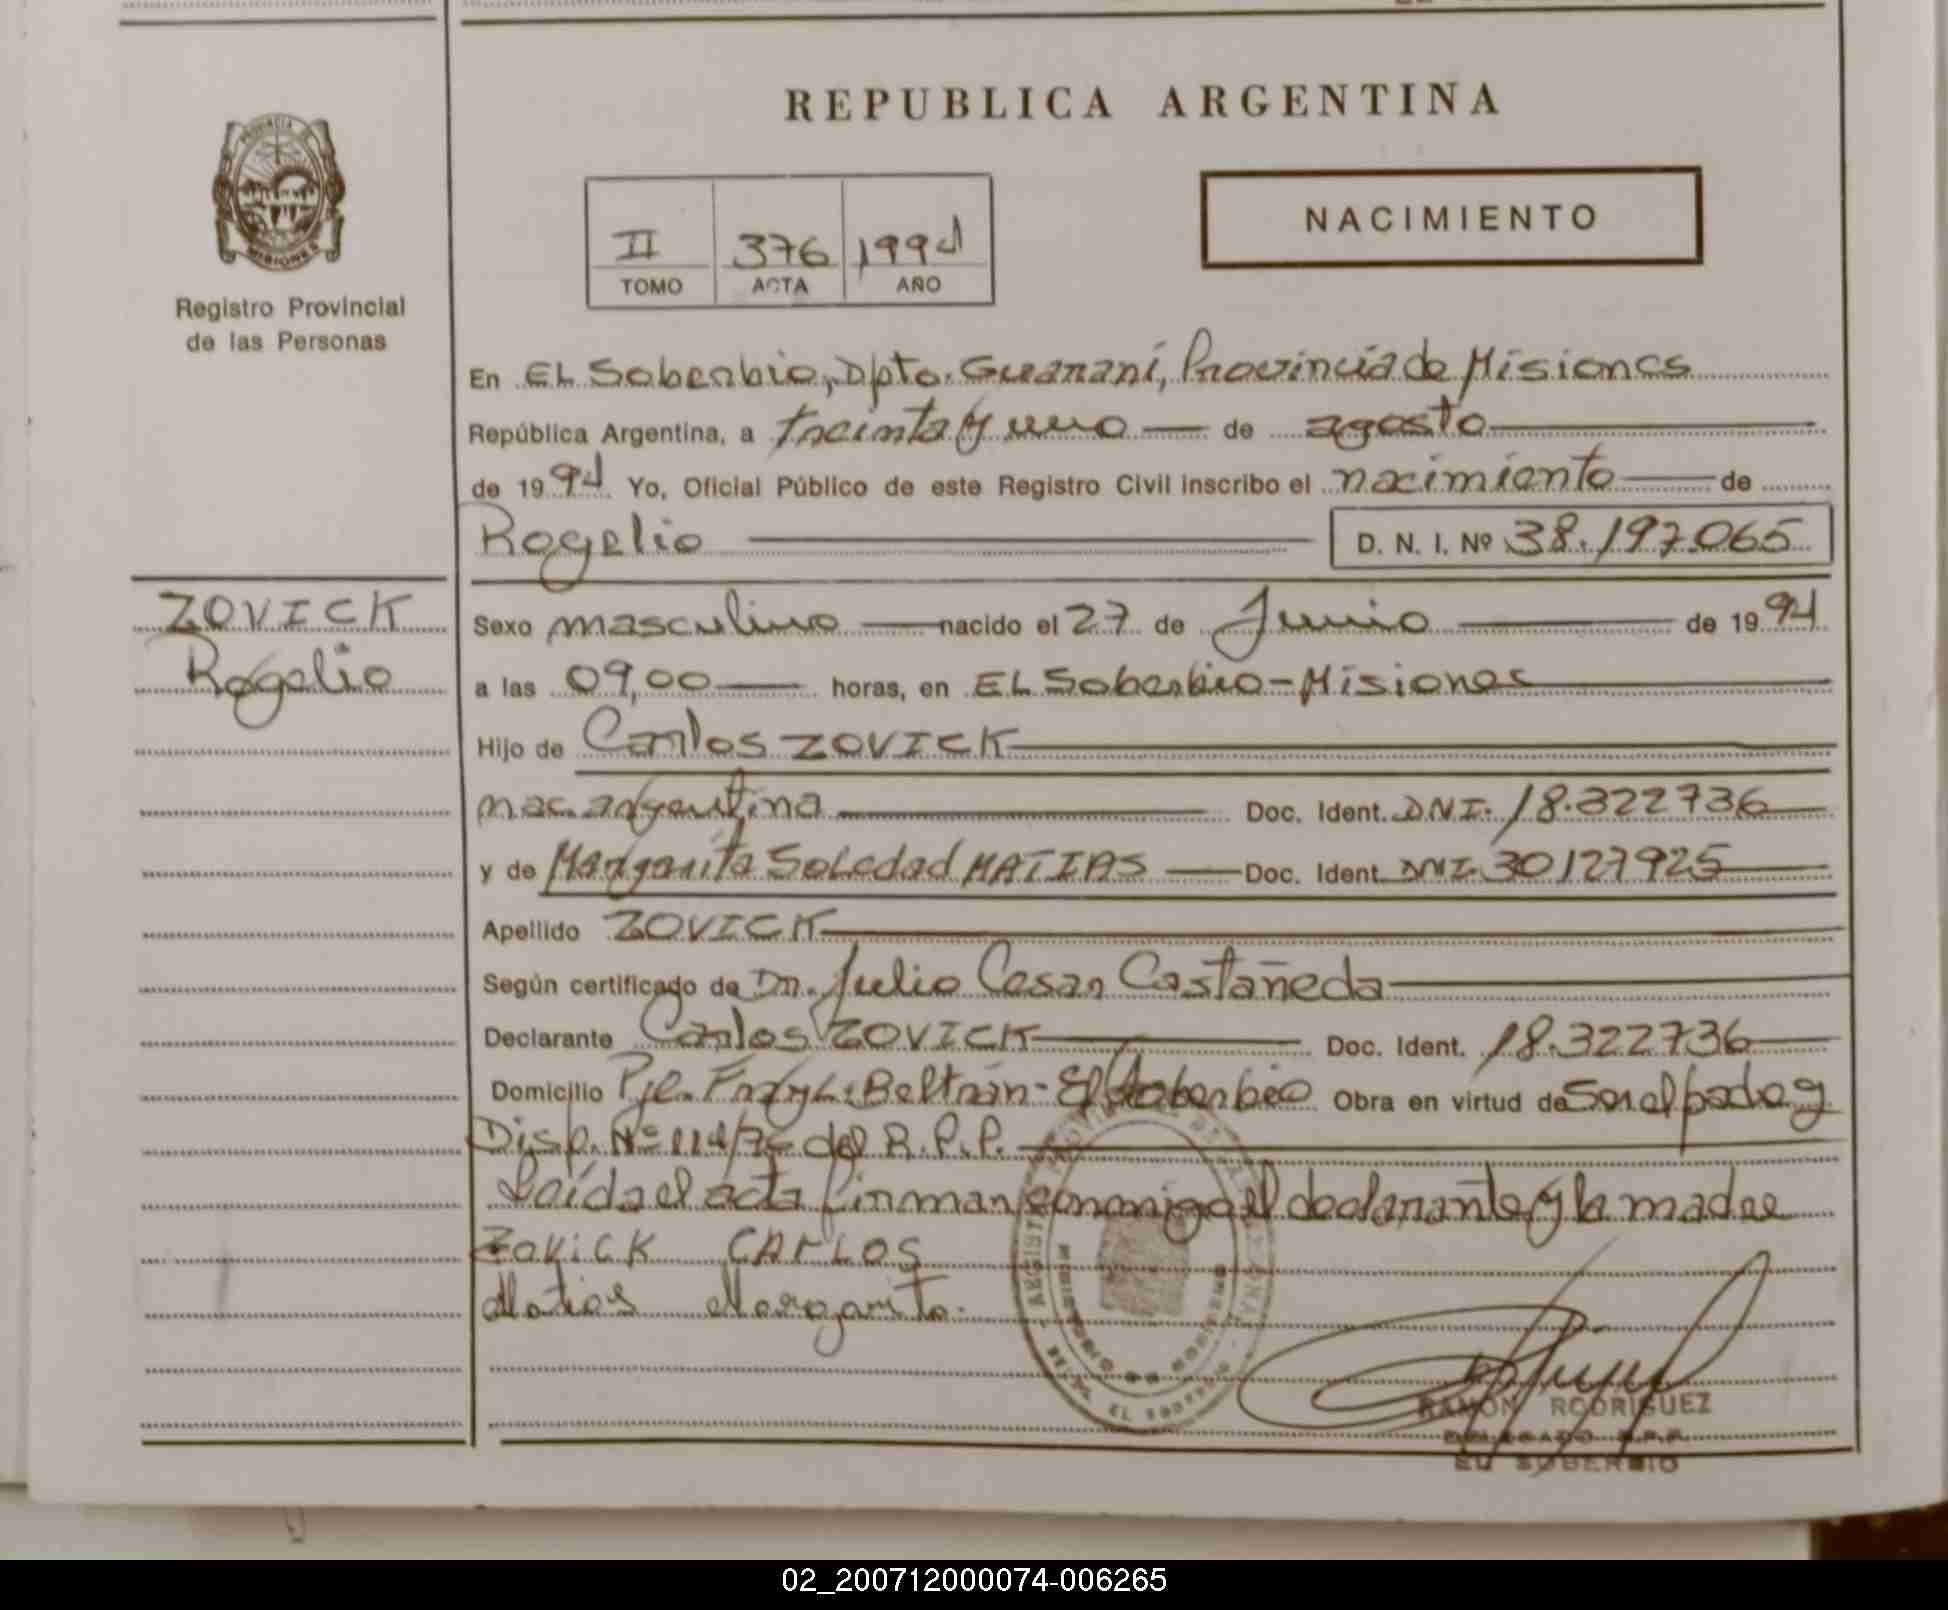 REPUBLICA ARGENTINA
PROVINCIA DE
MISIONES
Registro Provincial
de las Personas
NACIMIENTO
II 376 1994
TOMO ACTA AÑO
En EL Soberbio, Dpto. Guaraní, Provincia de Misiones
República Argentina, a treinta y uno de agosto
de 1994 Yo, Oficial Público de este Registro Civil inscribo el nacimiento de
Rogelio D. N. I. Nº 38.197.065
ZOVICK
Rogelio
Sexo masculino nacido el 27 de Junio de 1994
a las 09,00 horas, en EL Soberbio - Misiones
Hijo de Carlos ZOVICK
nac. argentina Doc. Ident. DNI. 18.322736
y de Margarita Soledad MATIAS Doc. Ident. DNI. 30127925
Apellido ZOVICK
Según certificado de Dr. Julio Cesar Castañeda
Declarante Carlos ZOVICK Doc. Ident. 18.322736
Domicilio Pje. Fray L. Beltrán - El Soberbio Obra en virtud de Ser el padre y
Disp. Nº 114/76 del R.P.P.
Leída el acta firman conmigo el declarante y la madre
ZOVICK CARLOS
Matias Margarita.
MINISTERIO DE GOBIERNO
EL SOBERBIO
RAMON RODRIGUEZ
DELEGADO R.P.P.
EL SOBERBIO
02_200712000074-006265